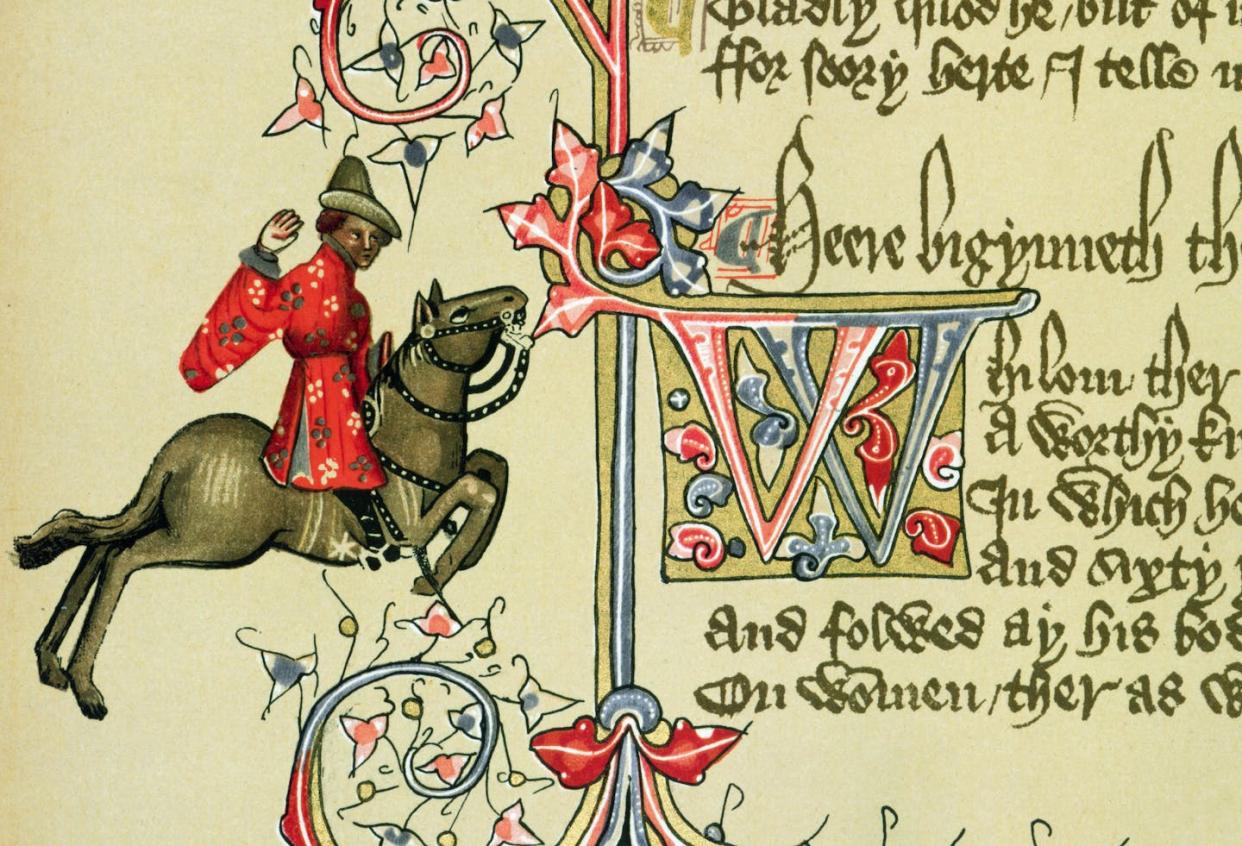 Gladly quod he / but of
ffor soory herte I telle
Heere bigynneth
Whilom ther
A worthy
In which
And sixty
And folwed ay his
On women / ther as